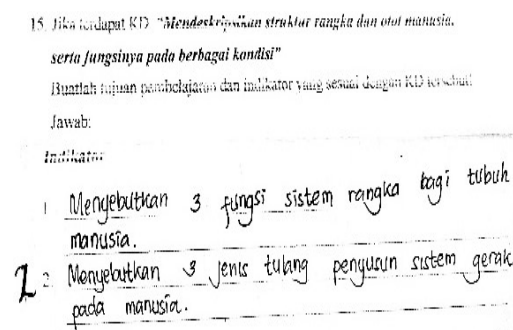 15. Jika terdapat KD "Mendeskripsikan struktur rangka dan otot manusia,
serta fungsinya pada berbagai kondisi"
Buatlah tujuan pembelajaran dan indikator yang sesuai dengan KD tersebut!
Jawab:
Indikator
1 Menyebutkan 3 fungsi sistem rangka bagi tubuh
manusia.
2 2. Menyebutkan 3 jenis tulang penyusun sistem gerak
pada manusia.